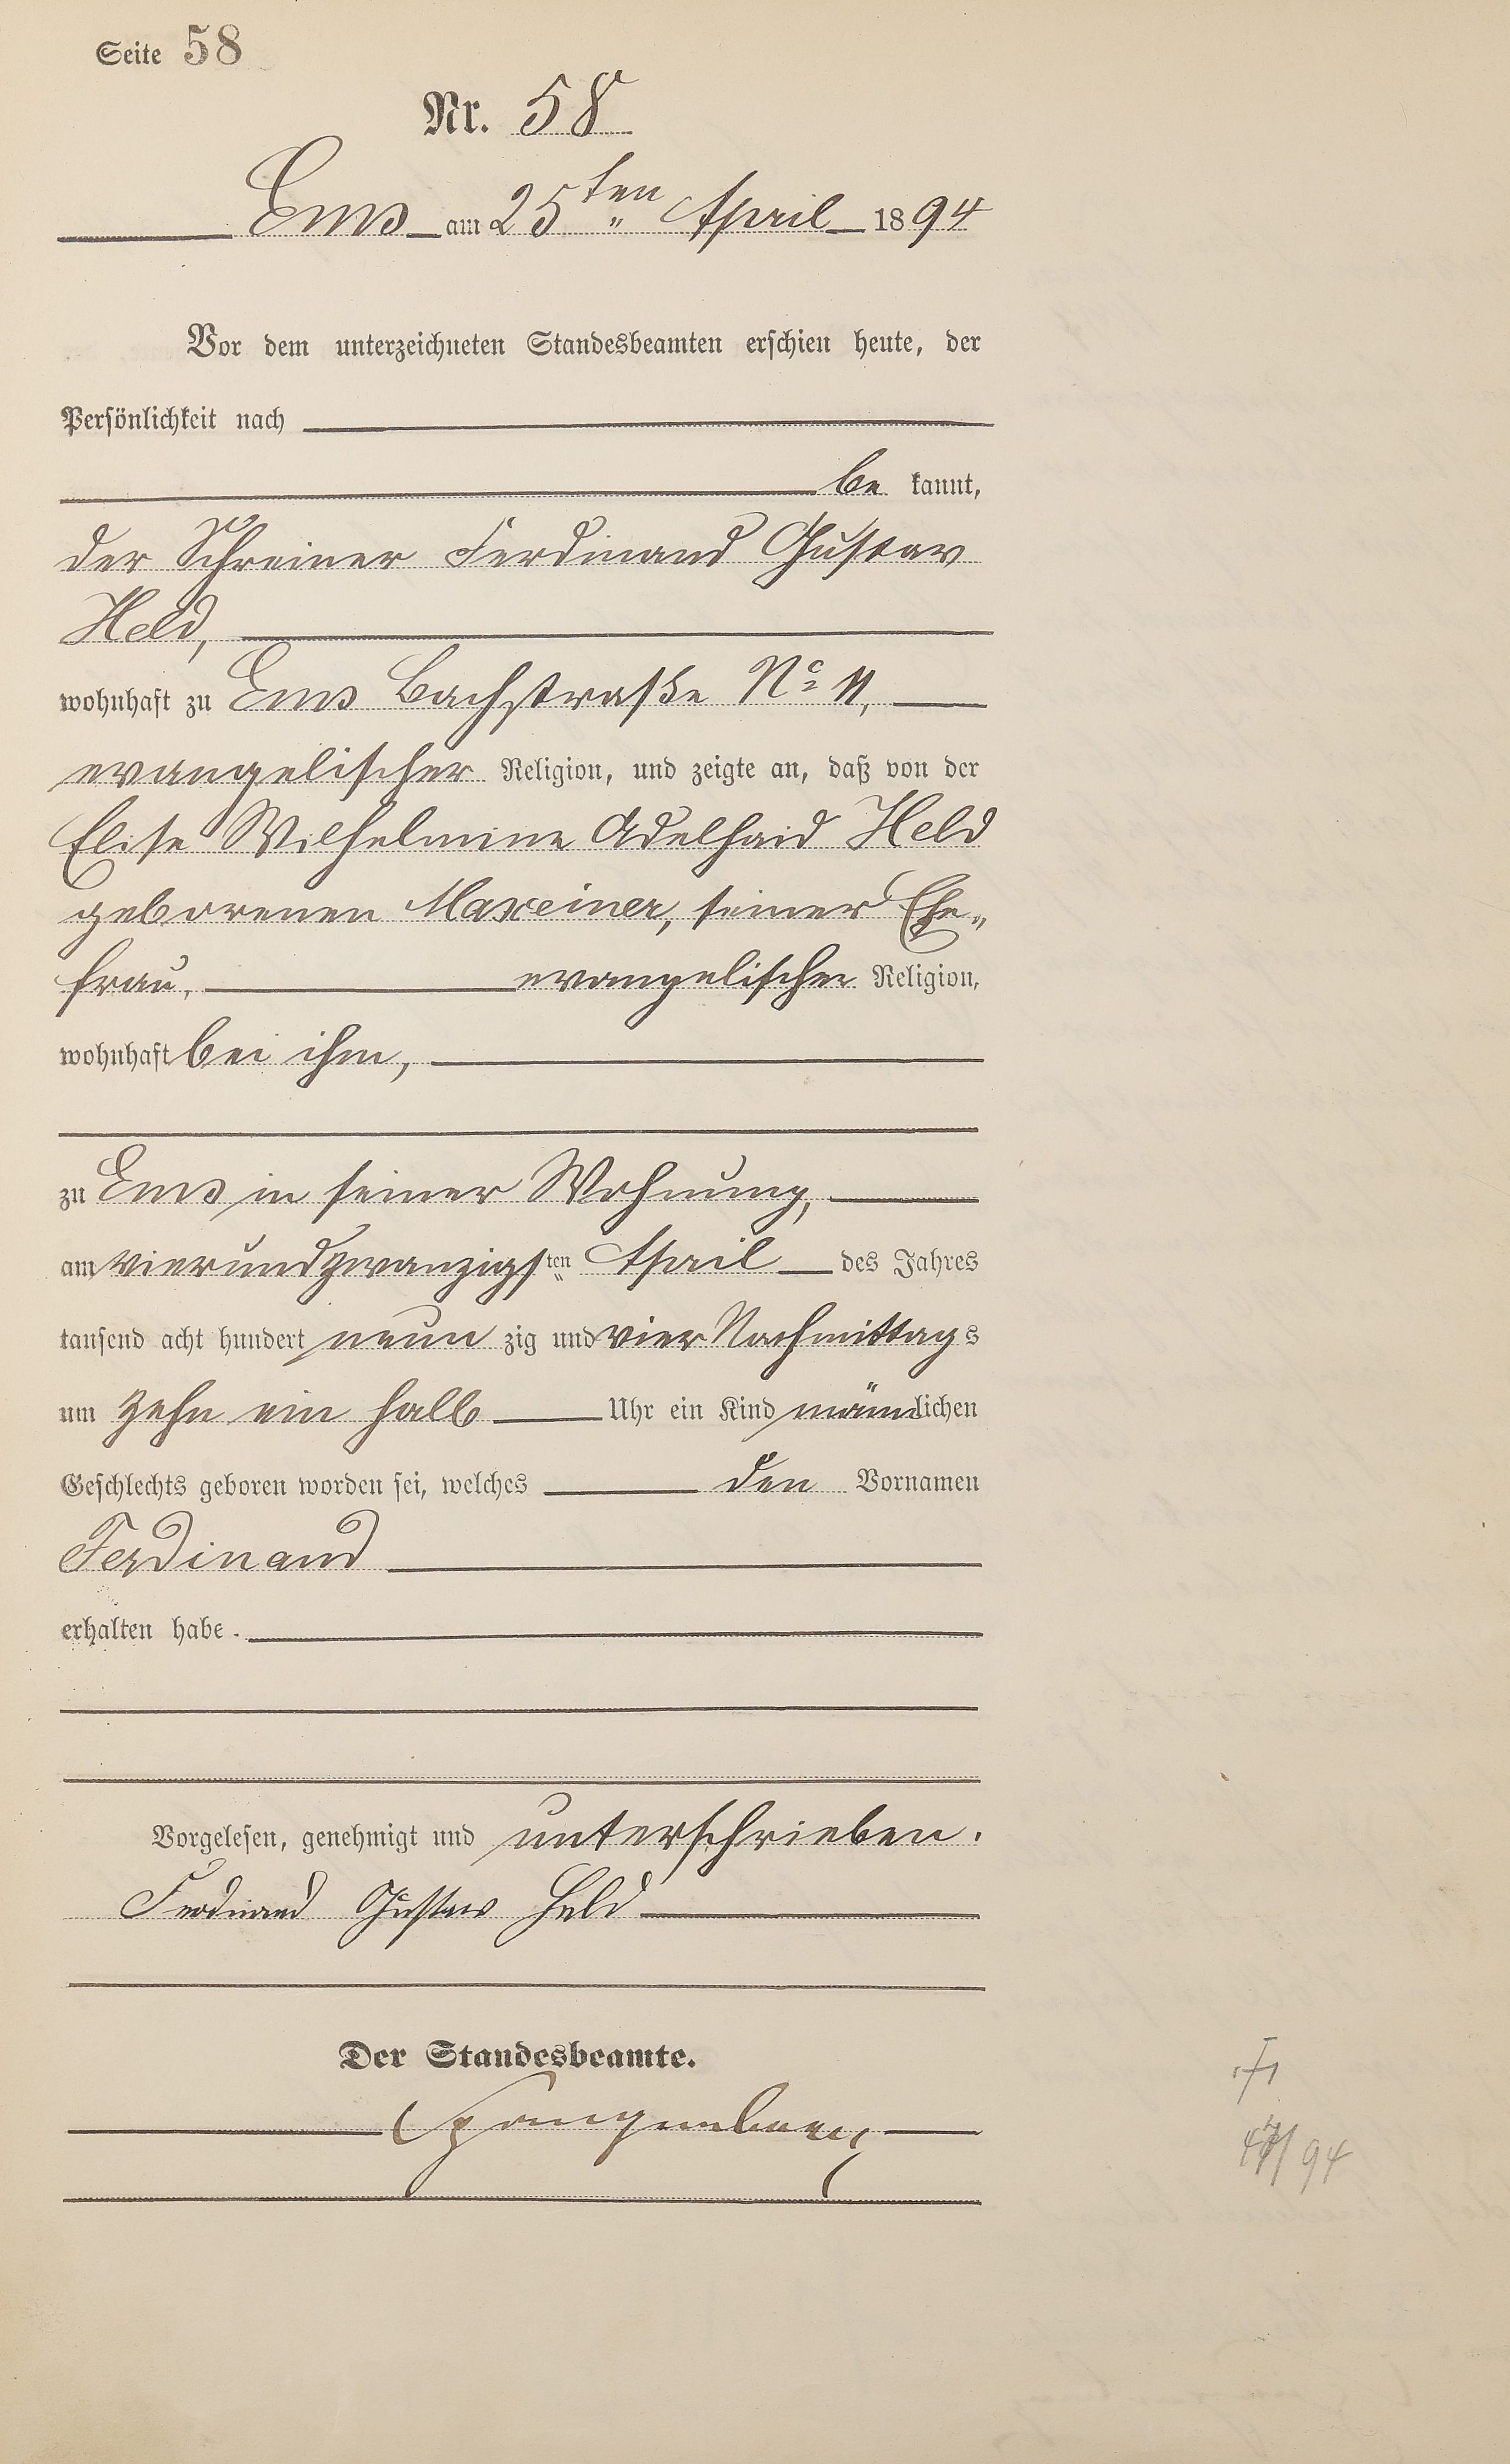 Seite 58
Nr. 58
Ems am 25ten April 1894
Vor dem unterzeichneten Standesbeamten erschien heute, der
Persönlichkeit nach
be kannt,
der Schreiner Ferdinand Gustav
Held,
wohnhaft zu Ems Bachstraße No 11,
evangelischer Religion, und zeigte an, daß von der
Elise Wilhelmine Adelhaid Held
geborenen Maxeiner, seiner Ehe„
frau, evangelischer Religion,
wohnhaft bei ihm,
zu Ems in seiner Wohnung,
am vierundzwanzigsten April des Jahres
tausend acht hundert neun zig und vier Nachmittags
um zehn ein halb Uhr ein Kind männlichen
Geschlechts geboren worden sei, welches den Vornamen
Ferdinand
erhalten habe.
Vorgelesen, genehmigt und unterschrieben.
Ferdinand Gustav Held
Der Standesbeamte.
/94